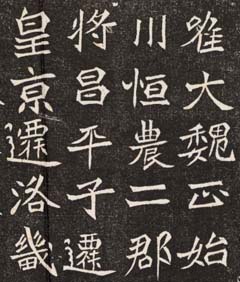 唯大魏正始
川恒農二郡
將昌平子遷
皇京遷洛畿